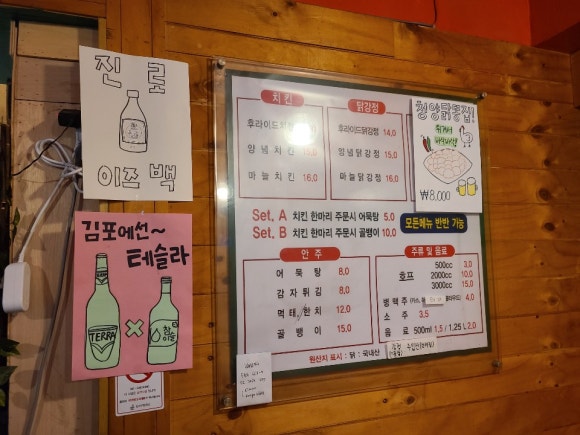 진로
이즈백
김포에선~
테슬라
TERRA
참이슬
치킨
후라이드치킨
양념치킨
마늘치킨 16.0
닭강정
후라이드닭강정 14.0
양념닭강정 15.0
마늘닭강정 16.0
₩8,000
Set. A 치킨 한마리 주문시 어묵탕 5.0
Set. B 치킨 한마리 주문시 골뱅이 10.0
모든메뉴 반반 가능
안주
어묵탕 8.0
감자튀김 8.0
먹태,한치 12.0
골뱅이 15.0
주류 및 음료
호프
500cc 3.0
2000cc 10.0
3000cc 15.0
병맥주 4.0
소주 3.5
음료 500ml 1.5 / 1.25 L 2.0
원산지 표시 : 닭 : 국내산